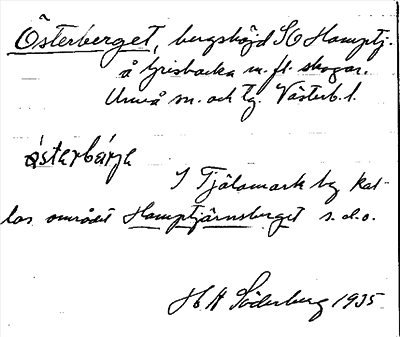 Österberget, bergshöjd SO Hamptj.
å Grisbacka m. fl. skogar.
Umeå sn. och tg. Västerb. l.
östarbárje
I Tjälamark by kal-
las området Hamptjärnsberget s. d. o.
H A Söderberg 1935